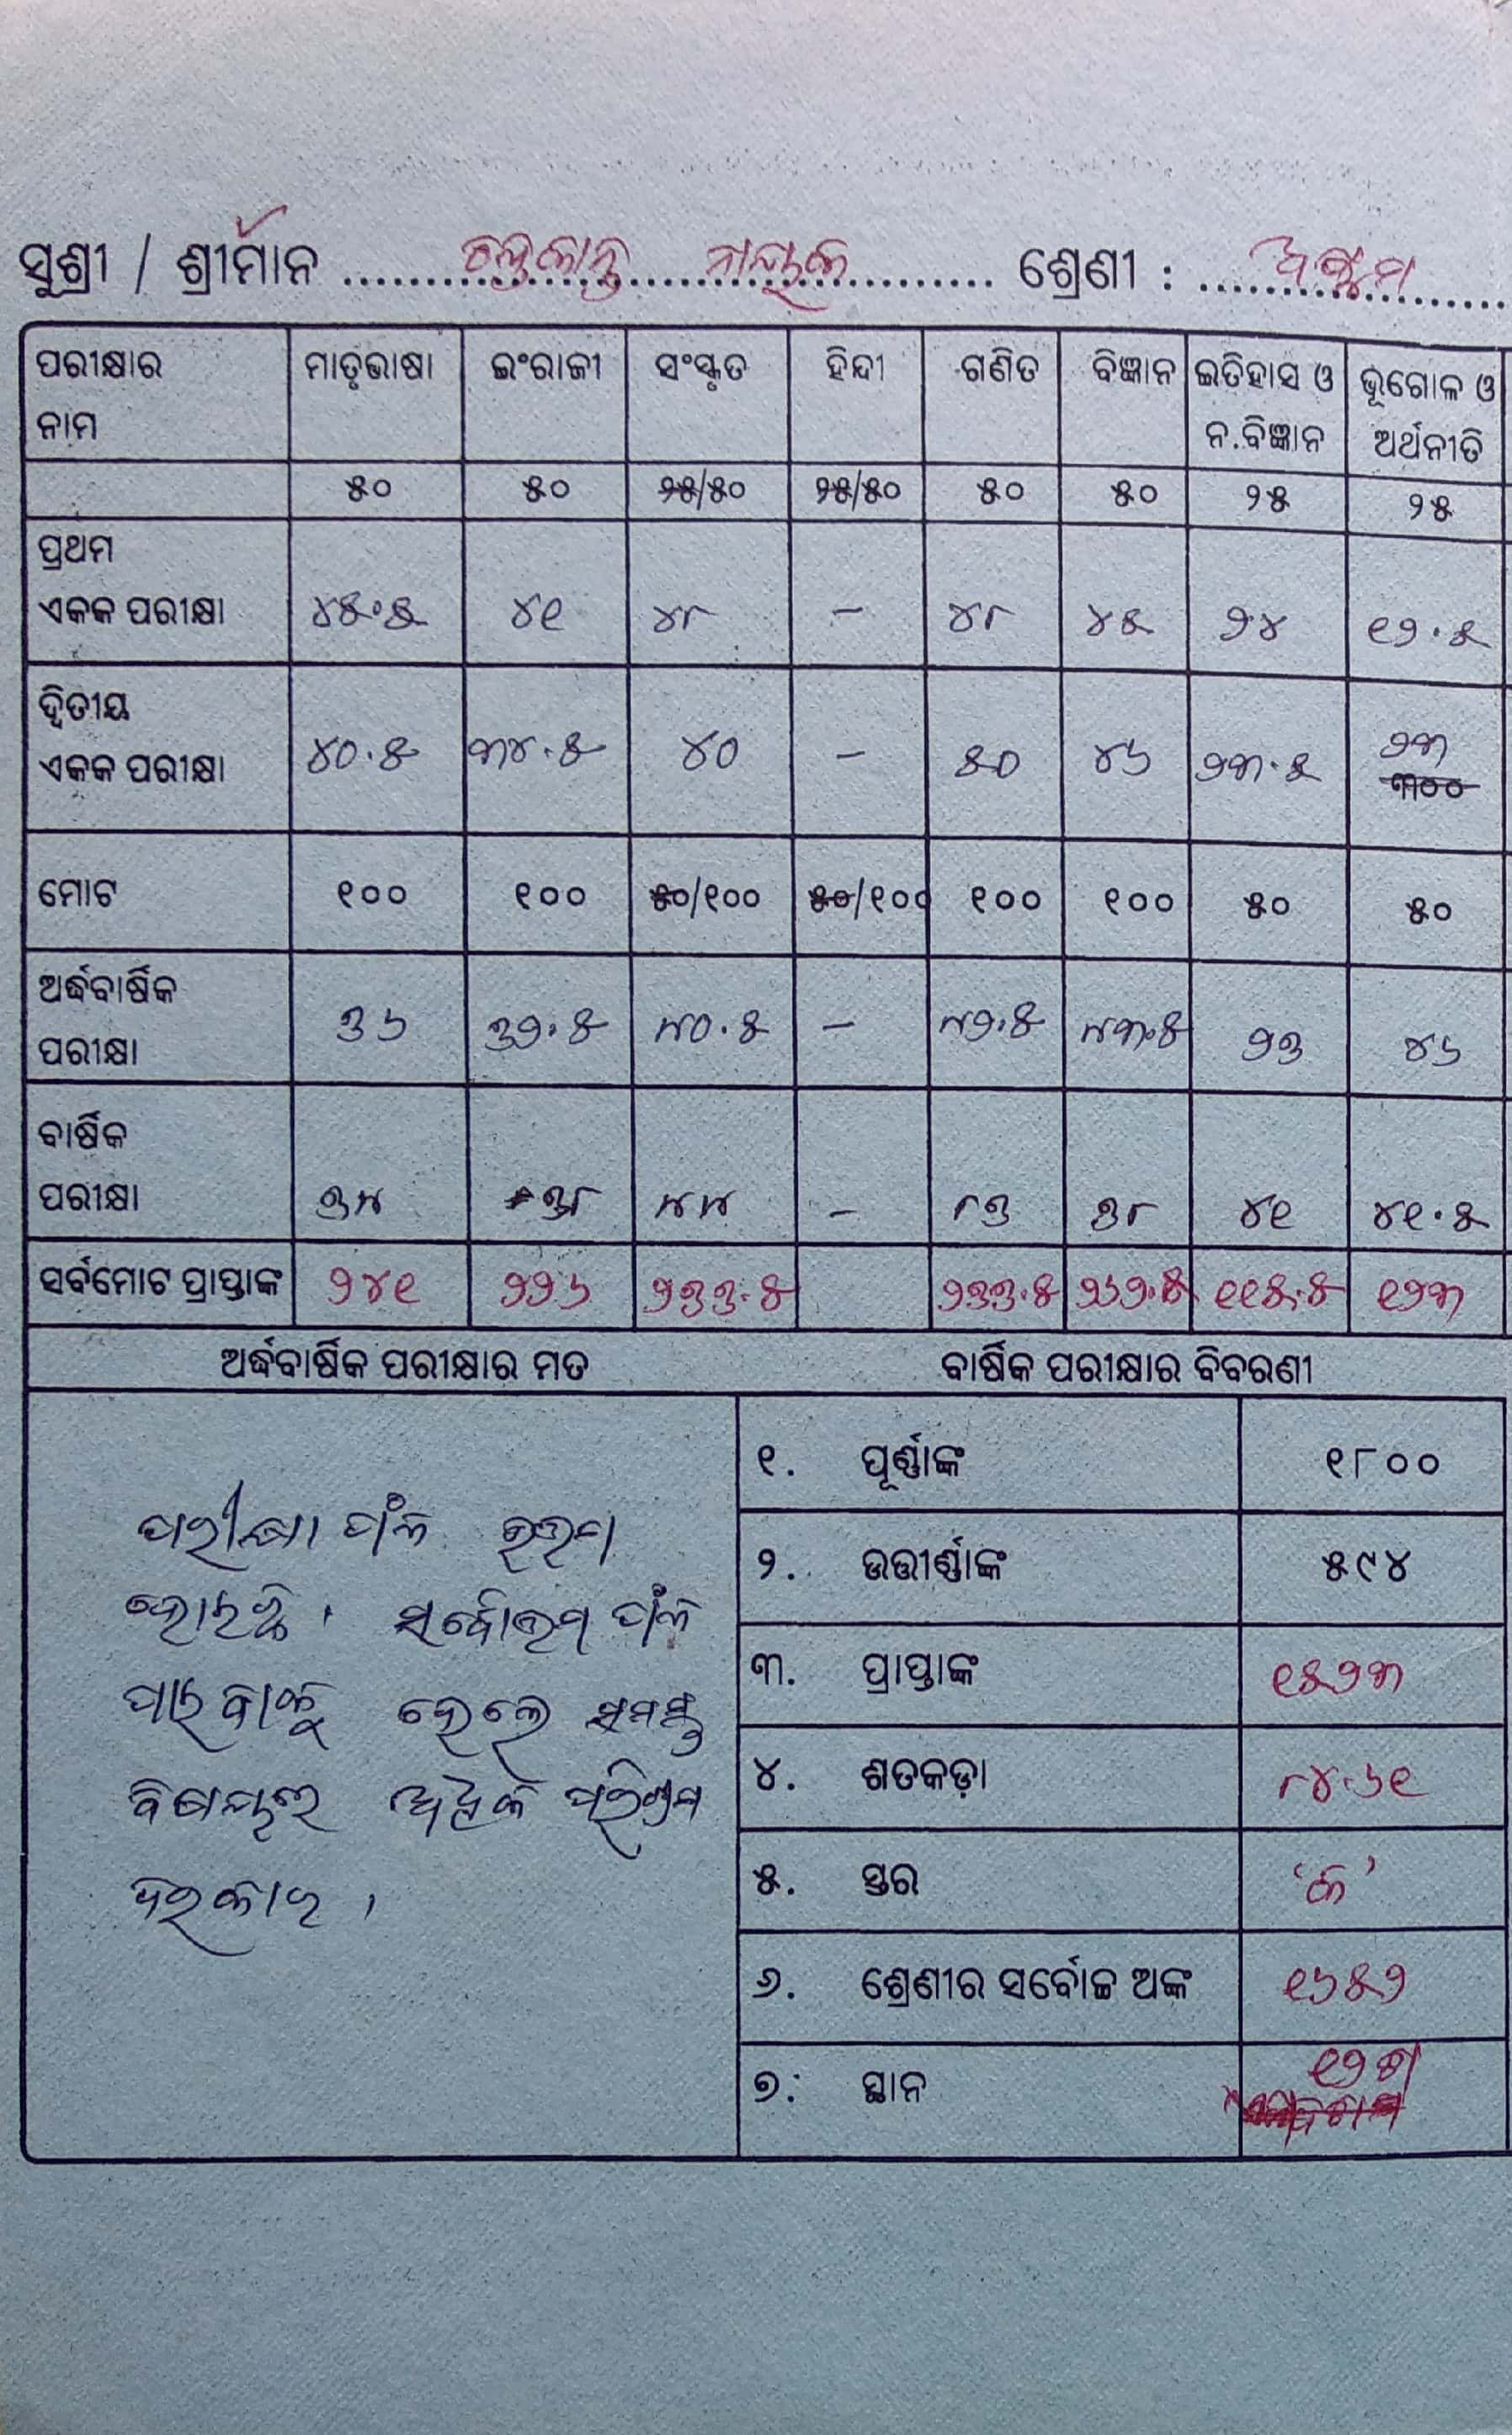 ସୁଶ୍ରୀ / ଶ୍ରୀମାନ ........ ନାୟକ ........ ଶ୍ରେଣୀ : ଅଷ୍ଟମ
ପରୀକ୍ଷାର ନାମ ମାତୃଭାଷା ଇଂରାଜୀ ସଂସ୍କୃତ ହିନ୍ଦୀ ଗଣିତ ବିଜ୍ଞାନ ଇତିହାସ ଓ ନ.ବିଜ୍ଞାନ ଭୂଗୋଳ ଓ ଅର୍ଥନୀତି
୫୦ ୫୦ ୨୫/୫୦ ୨୫/୫୦ ୫୦ ୫୦ ୨୫ ୨୫
ପ୍ରଥମ
ଏକକ ପରୀକ୍ଷା ୪୫.୫ ୪୧ ୪୮ – ୪୮ ୪୫ ୨୪ ୧୨.୫
ଦ୍ୱିତୀୟ
ଏକକ ପରୀକ୍ଷା ୪୦.୫ ୩୪.୫ ୪୦ – ୫୦ ୪୬ ୨୩.୫ ୨୩
୩୦୦
ମୋଟ ୧୦୦ ୧୦୦ ୫୦/୧୦୦ ୫୦/୧୦୦ ୧୦୦ ୧୦୦ ୫୦ ୫୦
ଅର୍ଦ୍ଧବାର୍ଷିକ
ପରୀକ୍ଷା ୭୬ ୭୨.୫ ୯୦.୫ – ୯୨.୫ ୯୩.୫ ୨୭ ୪୬
ବାର୍ଷିକ
ପରୀକ୍ଷା ୭୯ ୭୮ ୯୯ – ୮୭ ୭୮ ୪୧ ୪୧.୫
ସର୍ବମୋଟ ପ୍ରାପ୍ତାଙ୍କ ୨୪୧ ୨୨୬ ୨୭୭.୫ ୨୭୭.୫ ୨୬୨.୫ ୧୧୫.୫ ୧୨୩
ଅର୍ଦ୍ଧବାର୍ଷିକ ପରୀକ୍ଷାର ମତ ବାର୍ଷିକ ପରୀକ୍ଷାର ବିବରଣୀ
ପରୀକ୍ଷା ଫଳ ଉତ୍ତମ
ହୋଇଛି । ସର୍ବୋତ୍ତମ ଫଳ
ପାଇବାକୁ ହେଲେ ସମସ୍ତ
ବିଷୟରେ ଅଧିକ ପରିଶ୍ରମ
ଦରକାର ।
୧. ପୂର୍ଣ୍ଣାଙ୍କ ୧୮୦୦
୨. ଉତ୍ତୀର୍ଣ୍ଣାଙ୍କ ୫୯୪
୩. ପ୍ରାପ୍ତାଙ୍କ ୧୫୨୩
୪. ଶତକଡ଼ା ୮୪.୬୧
୫. ସ୍ତର ‘କ’
୬. ଶ୍ରେଣୀର ସର୍ବୋଚ୍ଚ ଅଙ୍କ ୧୬୫୨
୭. ସ୍ଥାନ ୧୨ଶ